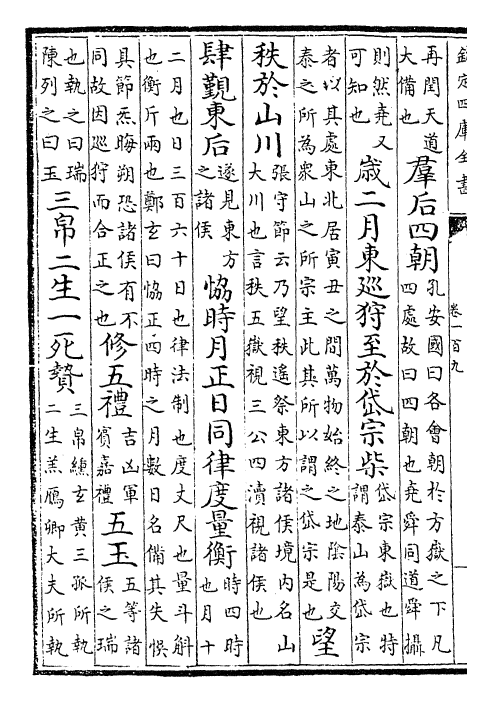 欽定四庫全書
卷一百九
再閏天道
大備也
羣后四朝
孔安國曰各會朝於方嶽之下凡
四處故曰四朝也堯舜同道舜攝
則然堯又
可知也
歲二月東巡狩至於岱宗柴
岱宗東嶽也特
謂泰山為岱宗
者以其處東北居寅丑之間萬物始終之地陰陽交
泰之所為衆山之所宗主此其所以謂之岱宗是也
望
秩於山川
張守節云乃望秩遙祭東方諸侯境内名山
大川也言秩五嶽視三公四瀆視諸侯也
肆覲東后
遂見東方
之諸侯
恊時月正日同律度量衡
時四時
也月十
二月也日三百六十日也律法制也度丈尺也量斗斛
也衡斤兩也鄭玄曰恊正四時之月數日名備其失悞
具節炁晦朔恐諸侯有不
同故因巡狩而合正之也
修五禮
吉凶軍
賔嘉禮
五玉
五等諸
侯之瑞
也執之曰瑞
陳列之曰玉
三帛二生一死贄
三帛纁玄黄三孤所執
二生羔鴈卿大夫所執